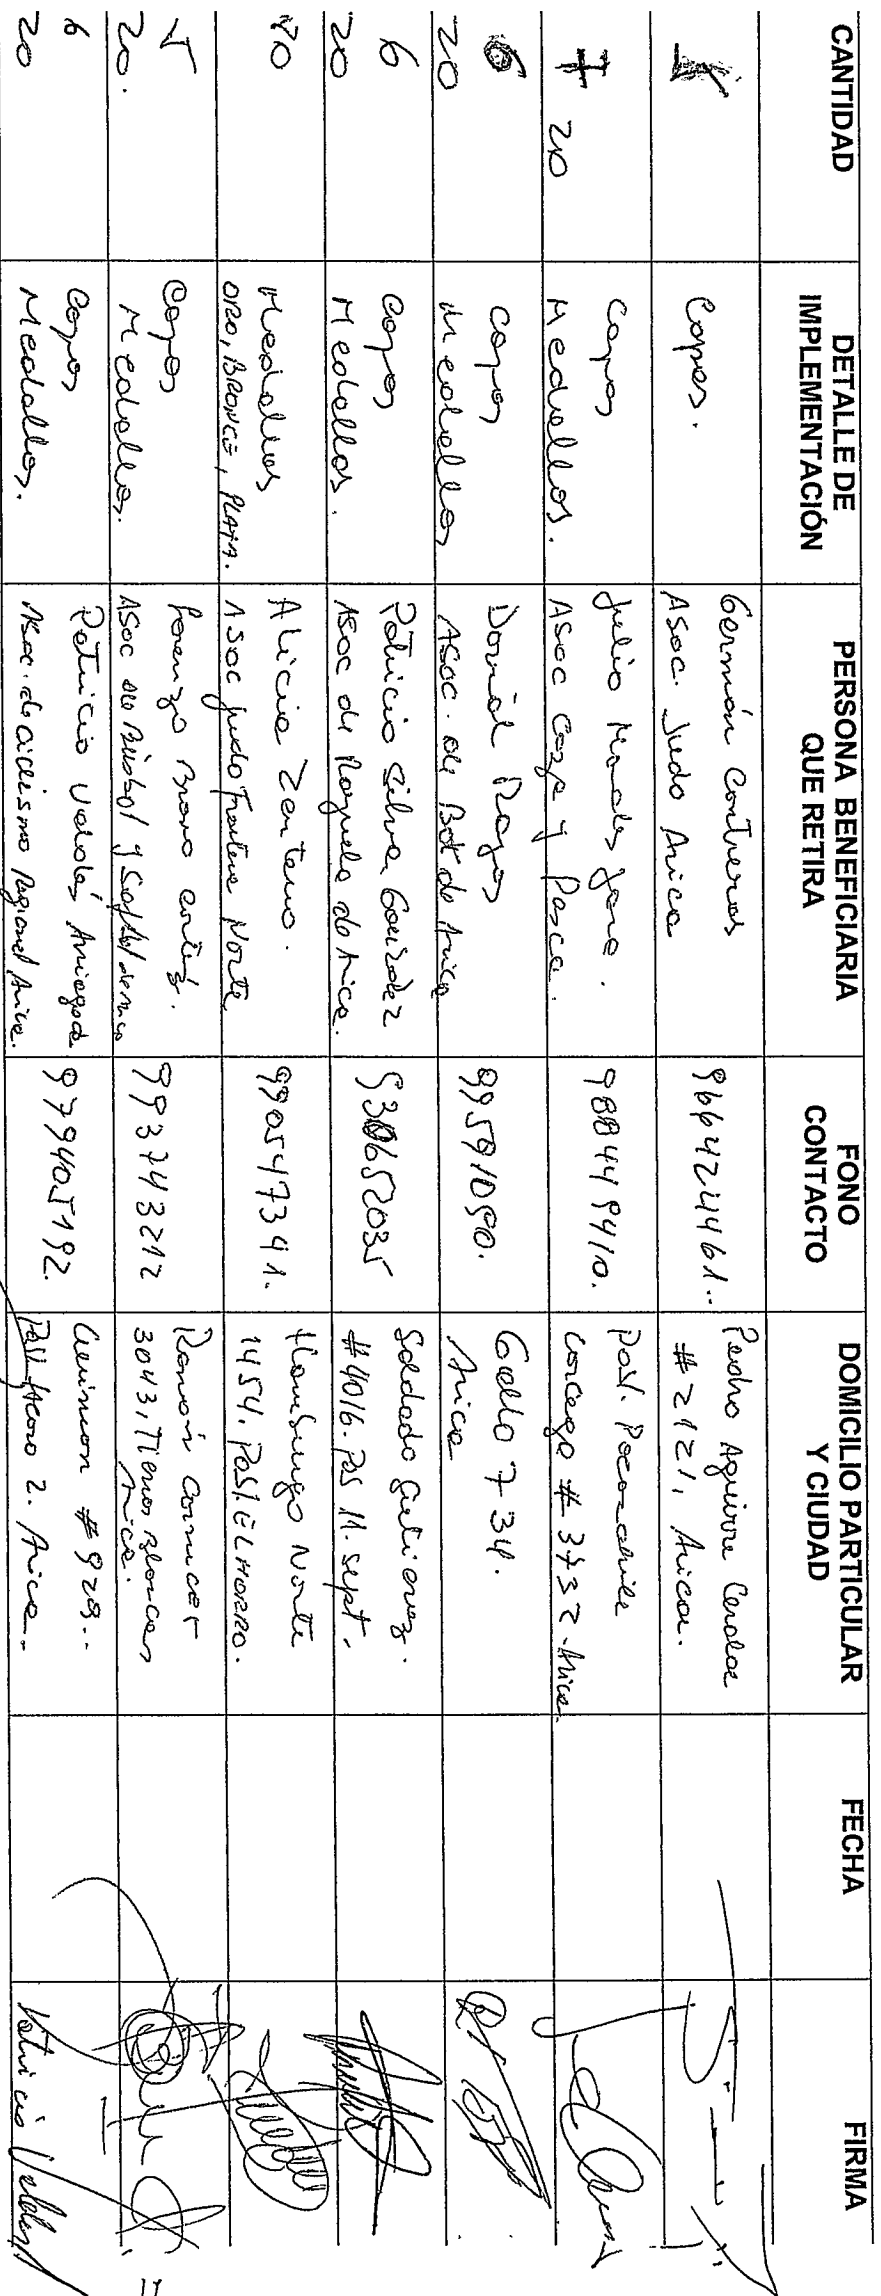 CANTIDAD
DETALLE DE
IMPLEMENTACIÓN
PERSONA BENEFICIARIA
QUE RETIRA
FONO
CONTACTO
DOMICILIO PARTICULAR
Y CIUDAD
FECHA
FIRMA
Copas.
Germán Contreras
Asoc. Judo Arica
966424461..
Pedro Aguirre Cerda
# 2121, Arica.
7
20
Copas
Medallas.
Julio
Asoc Caza y Pesca.
988449410.
Pobl.
# 3732 - Arica.
6
20
Copas
Medallas
Rojas
Asoc. de Box de Arica
99591090.
Gallo 734.
Arica
6
20
Copas
Medallas.
Patricio Silva González
Asoc de Rayuela de Arica.
930652035
Soldado Gutierrez.
#4016. Pob 11. sept.
Medallas
ORO, BRONCE, PLATA.
Alicia Zenteno.
Asoc Judo Frontera Norte
990547341.
Hamburgo Norte
1454. Pobl. EL MORRO.
5
20.
Copas
Medallas.
Lorenzo Bravo Cortés.
Asoc de Béisbol y
993743212
Ramón
3043, Tierras Blancas
Arica.
6
20
Copas
Medallas.
Patricio Valdés
Asoc. de ciclismo Regional Arica.
979405192.
# 929..
2. Arica..